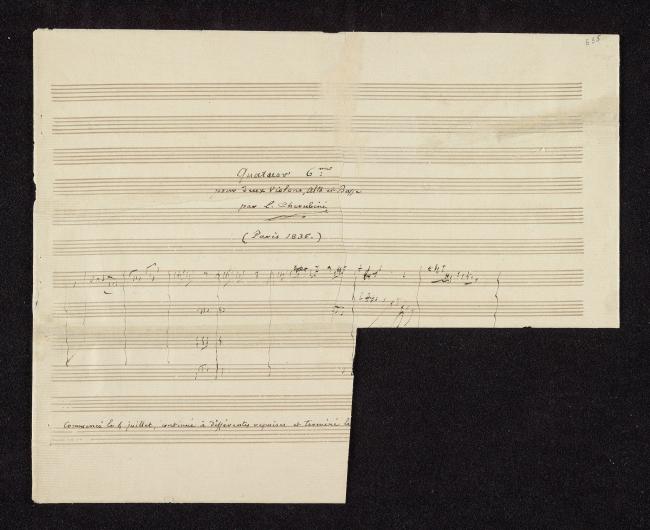 635
Quatuor 6me
pour deux Violons, Alto et Basse
par L. Cherubini
(Paris 1835.)
Commencé le 6 juillet, continué à différentes reprises et terminé le